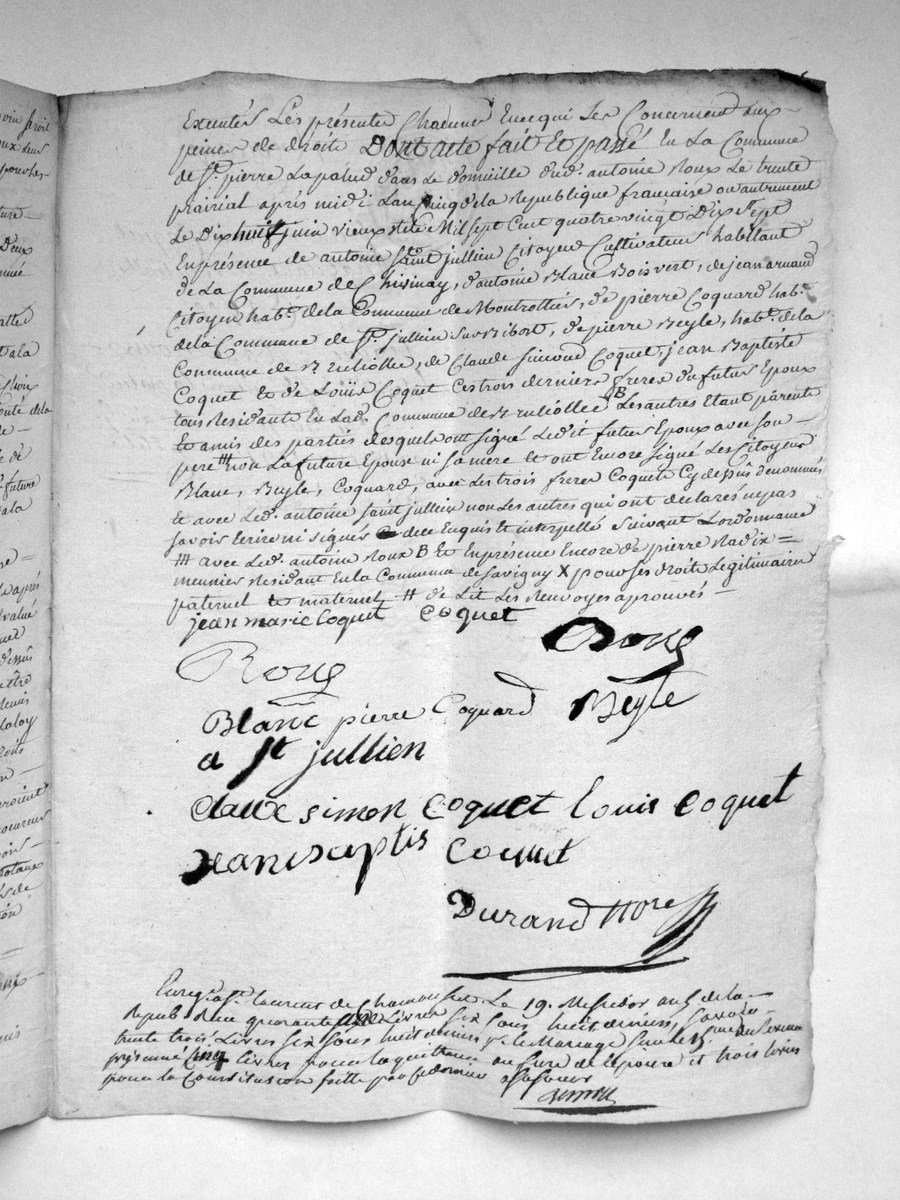 Executés Les présentes Chacunes Encequi Les Concernent aux
peines de droits Dont acte fait et passé En La Commune
de St. pierre Lapalud dans Le domicille dud. antoine Roux Le trente
prairial après midi L'an Cinq dela Republique francaise ou autrement
Le Dix huit juin vieux stile Mil sept Cent quatre vingt Dix sept
En présence de antoine saint jullien Citoyen Cultivateur habittant
de La Commune de Chivinay, d'antoine Blanc Boisvert, de jean arnaud
Citoyen habt. dela Commune de Montrottier, de pierre Coquard habt.
dela Commune de St. jullien sur Bibost, de pierre Beyle, habt. dela
Commune de Brulliolle, de Claude Simond Coquet, jean Baptiste
Coquet et de Loüis Coquet Ces trois derniers freres du futur Epoux
tous Residants En Lad. Commune de Brulliolles Les autres Etant parents
et amis des parties desquels ont signé Ledit futur Epoux avec son
pere # non La future Epouse ni sa mere et ont Encore signé Les Citoyens
Blanc, Beyle, Coquard, avec Les trois freres Coquet Cy dessus denommés
et avec Led. antoine saint jullien non Les autres qui ont declarés ne pas
savoir Ecrire ni signés de ce Enquis et interpellé suivant Lordonnance
# avec Led. antoine Roux B et En présence Encore de pierre Radix =
meunier Residant En la Commune de savigny X pour ses droits Legitimaires
paternel et maternel # de Lit Les Renvoyes aprouvés
jean marie Coquet Coquet
Roux
Roux
Blanc pierre Coquard Beyle
a St jullien
claude simon Coquet louis Coquet
Jean baptis Coquet
Durand Nore
19. Messidor an 5 de la
Repub. Reçu quarante Livres six sous huit deniers, savoir
trente trois Livres six sous huit deniers pr. le Mariage
cinq Livres pour la quittance au frere de lepouse et trois livres
pour la Constitution faitte par